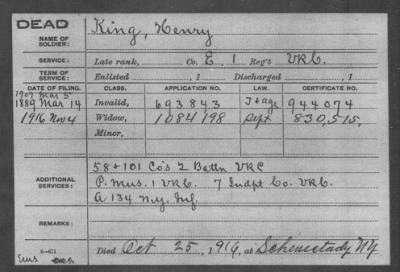 DEAD
NAME OF SOLDIER: King, Henry
SERVICE: Late rank, Co. E, 1 Reg't VRC.
TERM OF SERVICE: Enlisted , 1 Discharged , 1
DATE OF FILING. CLASS. APPLICATION NO. LAW. CERTIFICATE NO.
1907 Mar 5
1889 Mar 14 Invalid, 693843 I & age 944074
1916 Nov 4 Widow, 1084198 Sept 830,515.
Minor,
ADDITIONAL SERVICES: 58 + 101 Co's 2 Battn VRC
P. Mus. 1 VRC. 7 Indpt Co. VRC.
A 134 N.Y. Inf.
REMARKS:
Died Oct 25, 1916, at Schenectady NY